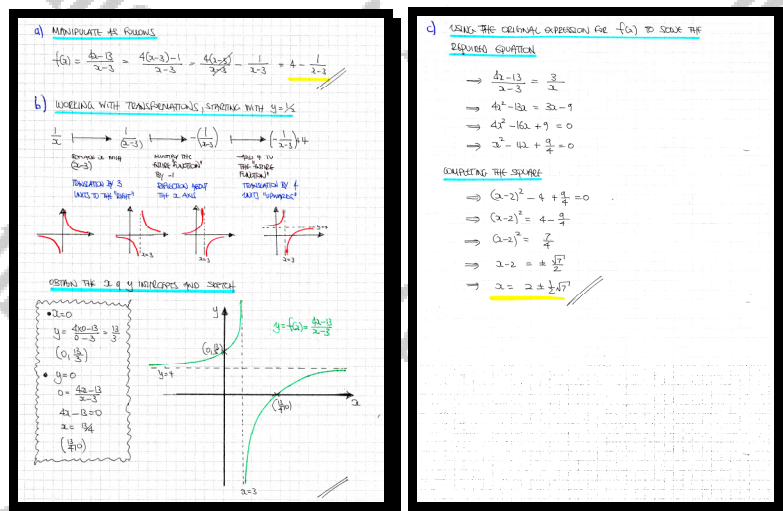 a) MANIPULATE AS FOLLOWS
f(x) = (4x-13)/(x-3) = (4(x-3)-1)/(x-3) = 4(x-3)/(x-3) - 1/(x-3) = 4 - 1/(x-3)
b) WORKING WITH TRANSFORMATIONS, STARTING WITH y=1/x
1/x ↦ 1/(x-3) ↦ -(1/(x-3)) ↦ (-1/(x-3))+4
REPLACE x WITH (x-3)
TRANSLATION BY 3 UNITS TO THE "RIGHT"
MULTIPLY THE "ENTIRE FUNCTION" BY -1
REFLECTION ABOUT THE x AXIS
ADD 4 TO THE "ENTIRE FUNCTION"
TRANSLATION BY 4 UNITS "UPWARDS"
x=3
x=3
x=3
OBTAIN THE x & y INTERCEPTS AND SKETCH
• x=0
y = (4×0-13)/(0-3) = 13/3
(0, 13/3)
• y=0
0 = (4x-13)/(x-3)
4x-13=0
x = 13/4
(13/4, 0)
y
y=f(x)= (4x-13)/(x-3)
(0, 13/3)
y=4
(13/4, 0)
x
x=3
c) USING THE ORIGINAL EXPRESSION FOR f(x) TO SOLVE THE
REQUIRED EQUATION
⇒ (4x-13)/(x-3) = 3/x
⇒ 4x²-13x = 3x-9
⇒ 4x²-16x+9 = 0
⇒ x²-4x+9/4 = 0
COMPLETING THE SQUARE
⇒ (x-2)² - 4 + 9/4 = 0
⇒ (x-2)² = 4 - 9/4
⇒ (x-2)² = 7/4
⇒ x-2 = ± √7/2
⇒ x = 2 ± ½√7